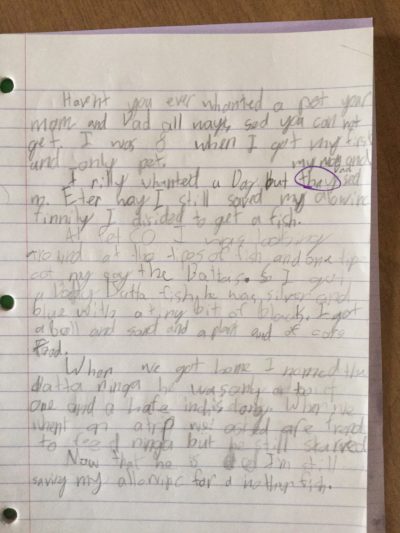 Havnt you ever whanted a pet your
mom and Dad all ways sed you can not
get. I was 8 when I got my first
and only pet. my mom and
I rilly whanted a Dog but they Dad sed
no. Eter  I still savd my alowinc
finnily I dicided to get a fish.
At I was looking
around at the tipes of fish, and one tipe
cot my eay the Battas. So I got
a Batta fish, he was silver and
blue with a tiny bit of black. I got
a boll and sand and a plant end of cors
Food.
When we got home I named the
Batta ninga he was only about
one and a hafe inchis long. When we
whent on a trip we asked are frend
to feed ninga but he still starved
Now that he is ded I'm still
saving my allowinc for a nother fish.